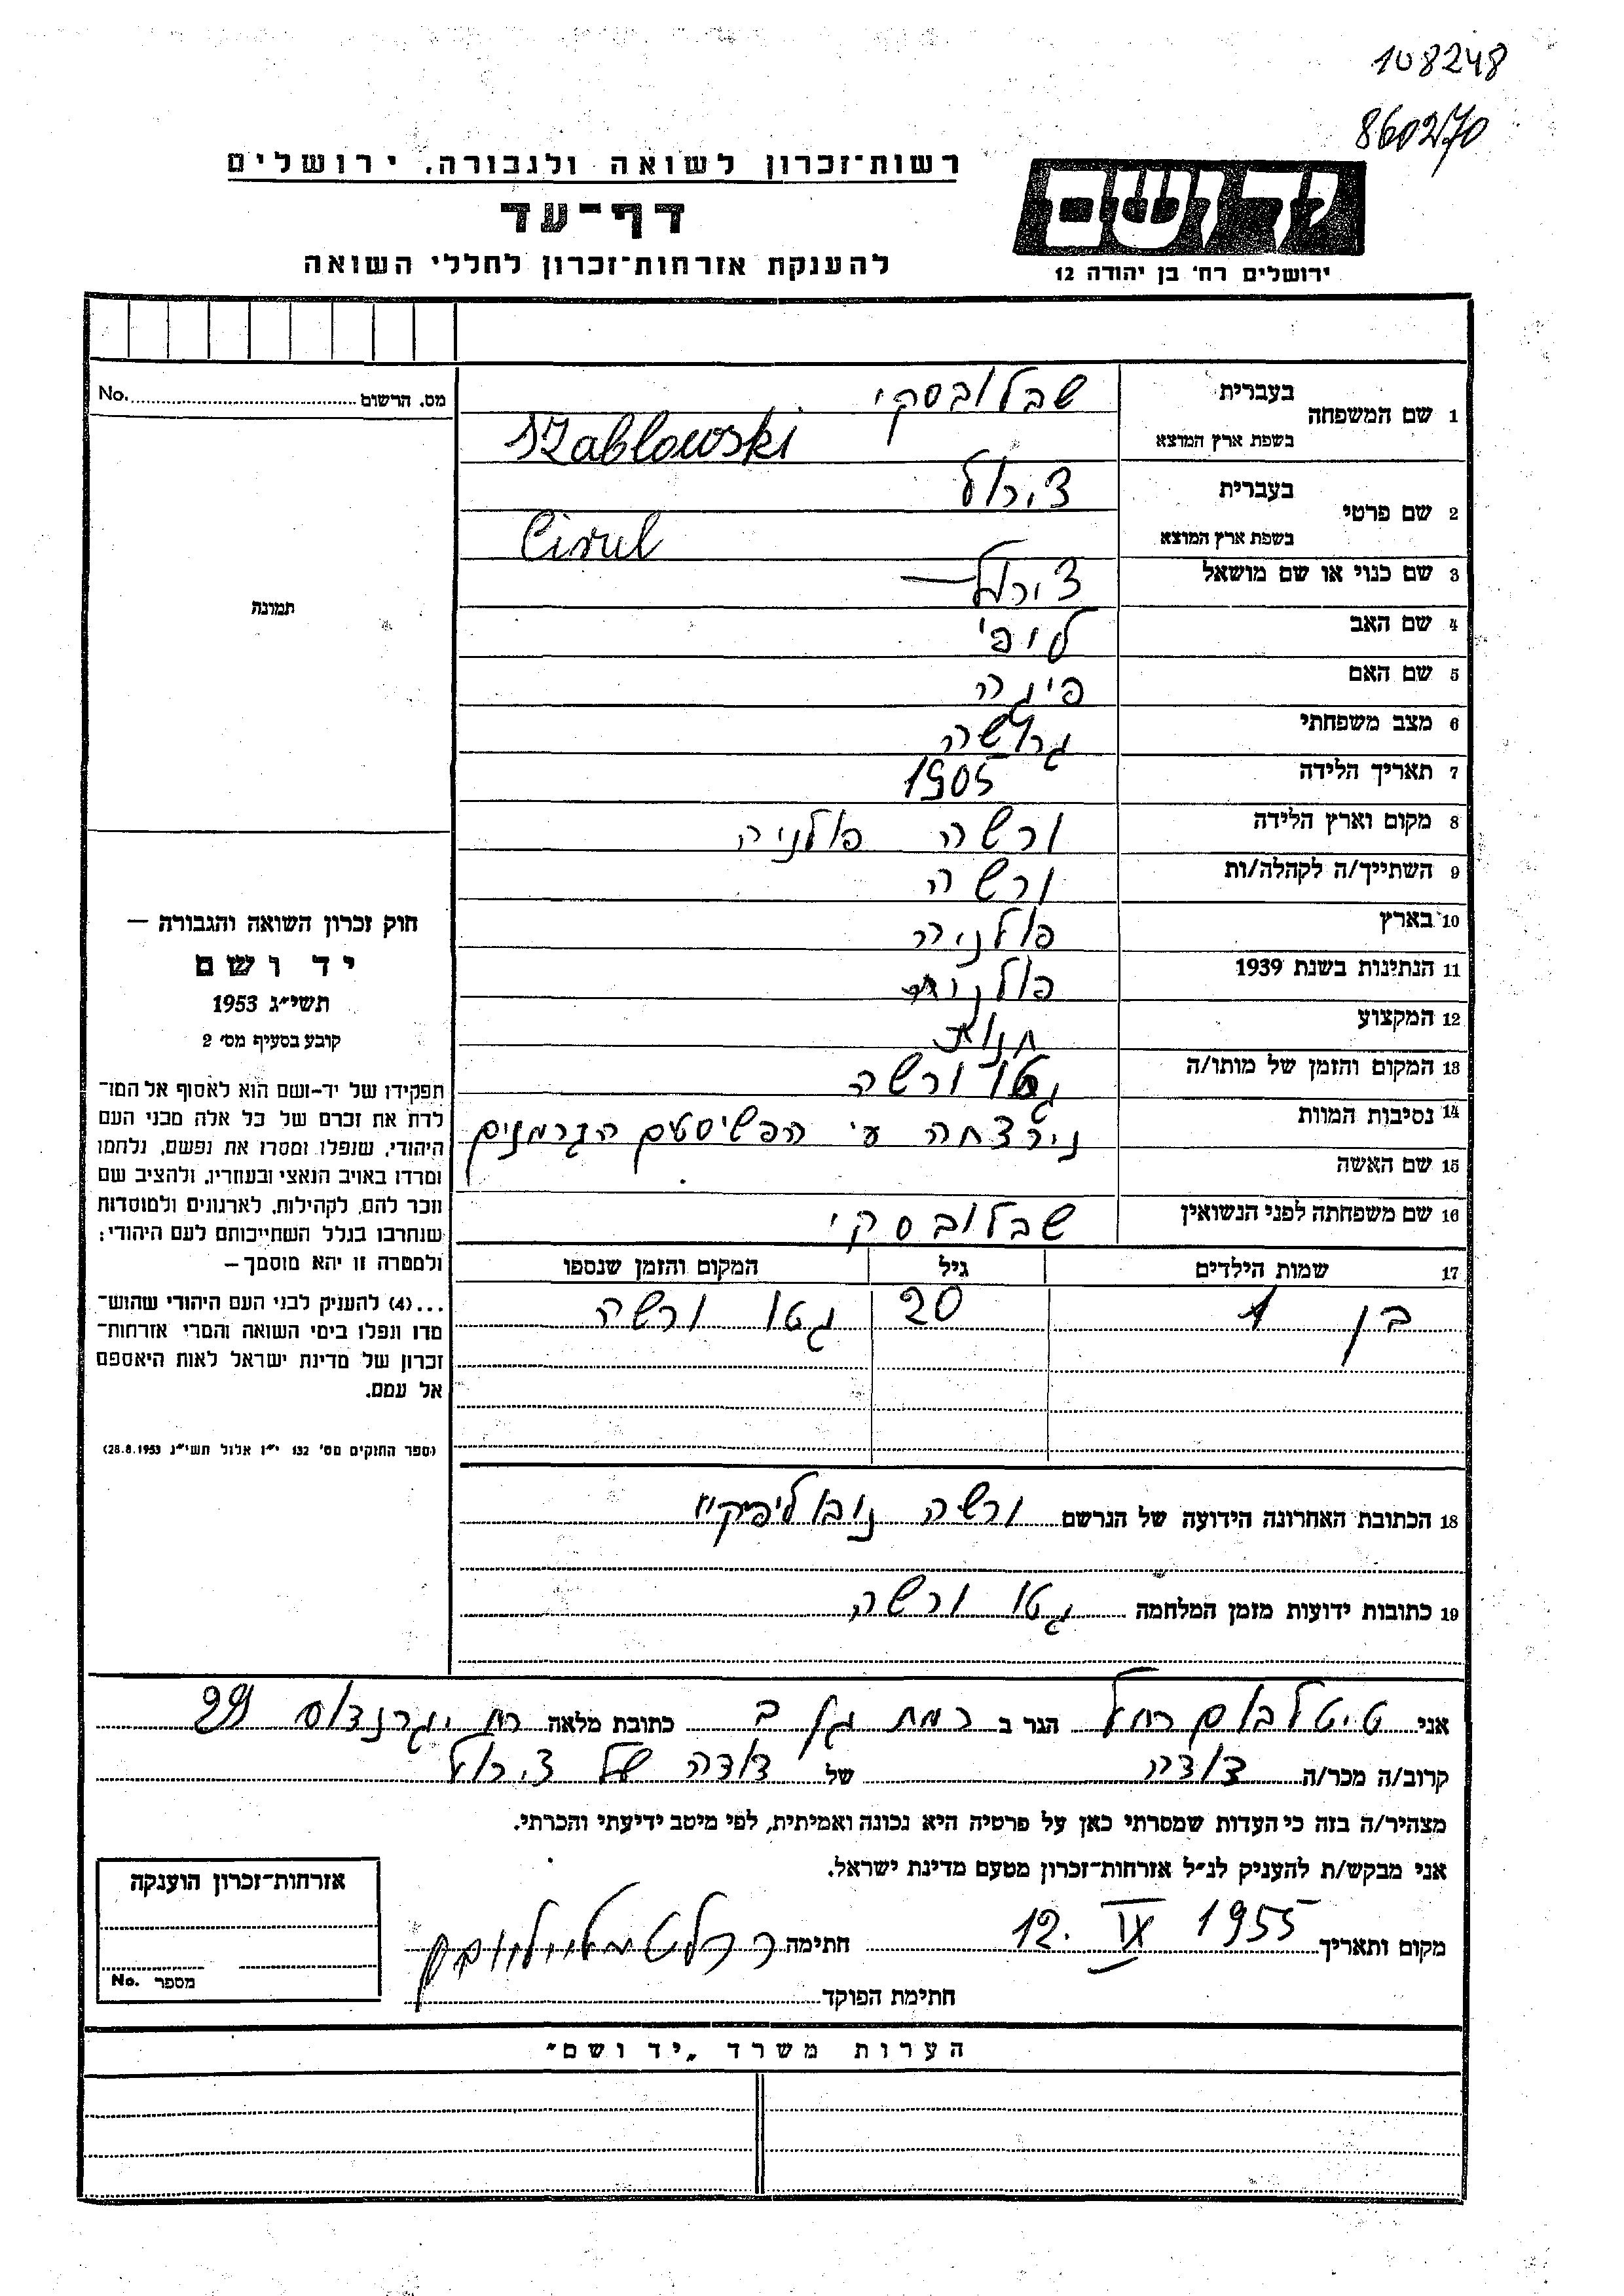 108248
860270
רשות־זכרון לשואה ולגבורה, ירושלים
דף־עד
להענקת אזרחות־זכרון לחללי השואה
יד ושם
ירושלים רח' בן יהודה 12
מס. הרשום No.
תמונה
1 שם המשפחה
בעברית שבלובסקי
בשפת ארץ המוצא Szablowski
2 שם פרטי
בעברית צירול
בשפת ארץ המוצא Cirul
3 שם כנוי או שם מושאל צירל
4 שם האב ליפי
5 שם האם פיגה
6 מצב משפחתי גרושה
7 תאריך הלידה 1905
8 מקום וארץ הלידה ורשה פולניה
9 השתייך/ה לקהלה/ות ורשה
10 בארץ פולניה
11 הנתינות בשנת 1939
12 המקצוע
13 המקום והזמן של מותו/ה גטו ורשה
14 נסיבות המוות נירצחה ע"י הפשיסטים הגרמנים
15 שם האשה
16 שם משפחתה לפני הנשואין שבלובסקי
17 שמות הילדים גיל המקום והזמן שנספו
בן 1 20 גטו ורשה
18 הכתובת האחרונה הידועה של הנרשם ורשה נובוליפקי
19 כתובות ידועות מזמן המלחמה גטו ורשה
חוק זכרון השואה והגבורה —
יד ושם
תשי"ג 1953
קובע בסעיף מס' 2
תפקידו של יד-ושם הוא לאסוף אל המו־
לדת את זכרם של כל אלה מבני העם
היהודי, שנפלו ומסרו את נפשם, נלחמו
ומרדו באויב הנאצי ובעוזריו, ולהציב שם
וזכר להם, לקהילות, לארגונים ולמוסדות
שנחרבו בגלל השתייכותם לעם היהודי;
ולמטרה זו יהא מוסמך —
...(4) להעניק לבני העם היהודי שהוש־
מדו ונפלו בימי השואה והמרי אזרחות־
זכרון של מדינת ישראל לאות היאספם
אל עמם.
(ספר החוקים מס' 132 י"ז אלול תשי"ג 28.8.1953)
אני טיטלבוים רחל הגר ב רמת גן ב כתובת מלאה רח 29
קרוב/ה מכר/ה דודה של דודה של צירול
מצהיר/ה בזה כי העדות שמסרתי כאן על פרטיה היא נכונה ואמיתית, לפי מיטב ידיעתי והכרתי.
אני מבקש/ת להעניק לנ"ל אזרחות־זכרון מטעם מדינת ישראל.
מקום ותאריך 12. IX 1955 חתימה
חתימת הפוקד
אזרחות־זכרון הוענקה
מספר No.
הערות משרד „יד ושם"